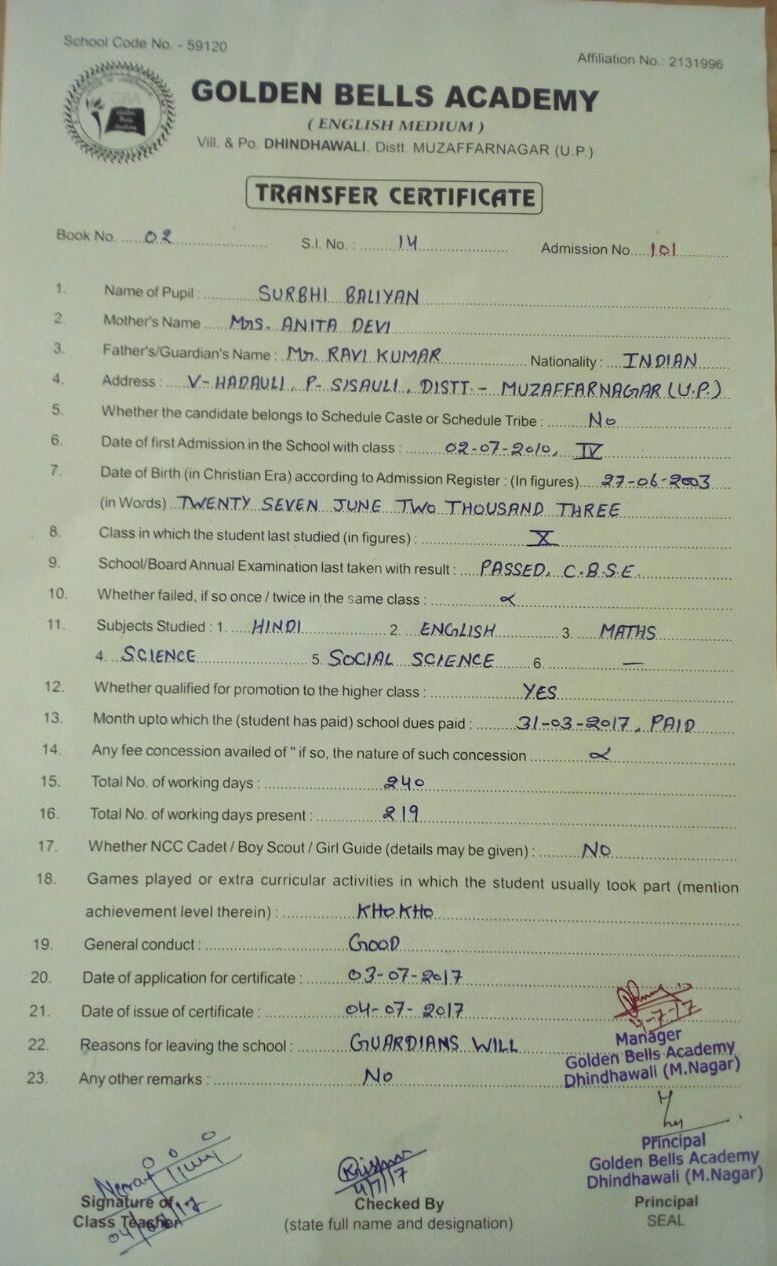 School Code No. - 59120
Affiliation No.: 2131996
GOLDEN BELLS ACADEMY
( ENGLISH MEDIUM )
Vill. & Po. DHINDHAWALI, Distt. MUZAFFARNAGAR (U.P.)
TRANSFER CERTIFICATE
Book No. 02 S.I. No. : 14 Admission No. 101
1. Name of Pupil : SURBHI BALIYAN
2. Mother's Name Mrs. ANITA DEVI
3. Father's/Guardian's Name : Mr. RAVI KUMAR Nationality : INDIAN
4. Address : V- HADAULI, P- SISAULI, DISTT- MUZAFFARNAGAR (U.P.)
5. Whether the candidate belongs to Schedule Caste or Schedule Tribe : No
6. Date of first Admission in the School with class : 02-07-2010, IV
7. Date of Birth (in Christian Era) according to Admission Register : (In figures) 27-06-2003
(in Words) TWENTY SEVEN JUNE TWO THOUSAND THREE
8. Class in which the student last studied (in figures) : X
9. School/Board Annual Examination last taken with result : PASSED, C.B.S.E.
10. Whether failed, if so once / twice in the same class :
11. Subjects Studied : 1. HINDI 2. ENGLISH 3. MATHS
4. SCIENCE 5. SOCIAL SCIENCE 6. —
12. Whether qualified for promotion to the higher class : YES
13. Month upto which the (student has paid) school dues paid : 31-03-2017, PAID
14. Any fee concession availed of " if so, the nature of such concession
15. Total No. of working days : 240
16. Total No. of working days present : 219
17. Whether NCC Cadet / Boy Scout / Girl Guide (details may be given) : NO
18. Games played or extra curricular activities in which the student usually took part (mention
achievement level therein) : KHO KHO
19. General conduct : GOOD
20. Date of application for certificate : 03-07-2017
21. Date of issue of certificate : 04-07-2017
4-7-17
22. Reasons for leaving the school : GUARDIANS WILL
Manager
Golden Bells Academy
Dhindhawali (M.Nagar)
23. Any other remarks : No
Principal
Golden Bells Academy
Dhindhawali (M.Nagar)
4/7/17
Signature of
Class Teacher
04/07/17
Checked By
(state full name and designation)
Principal
SEAL